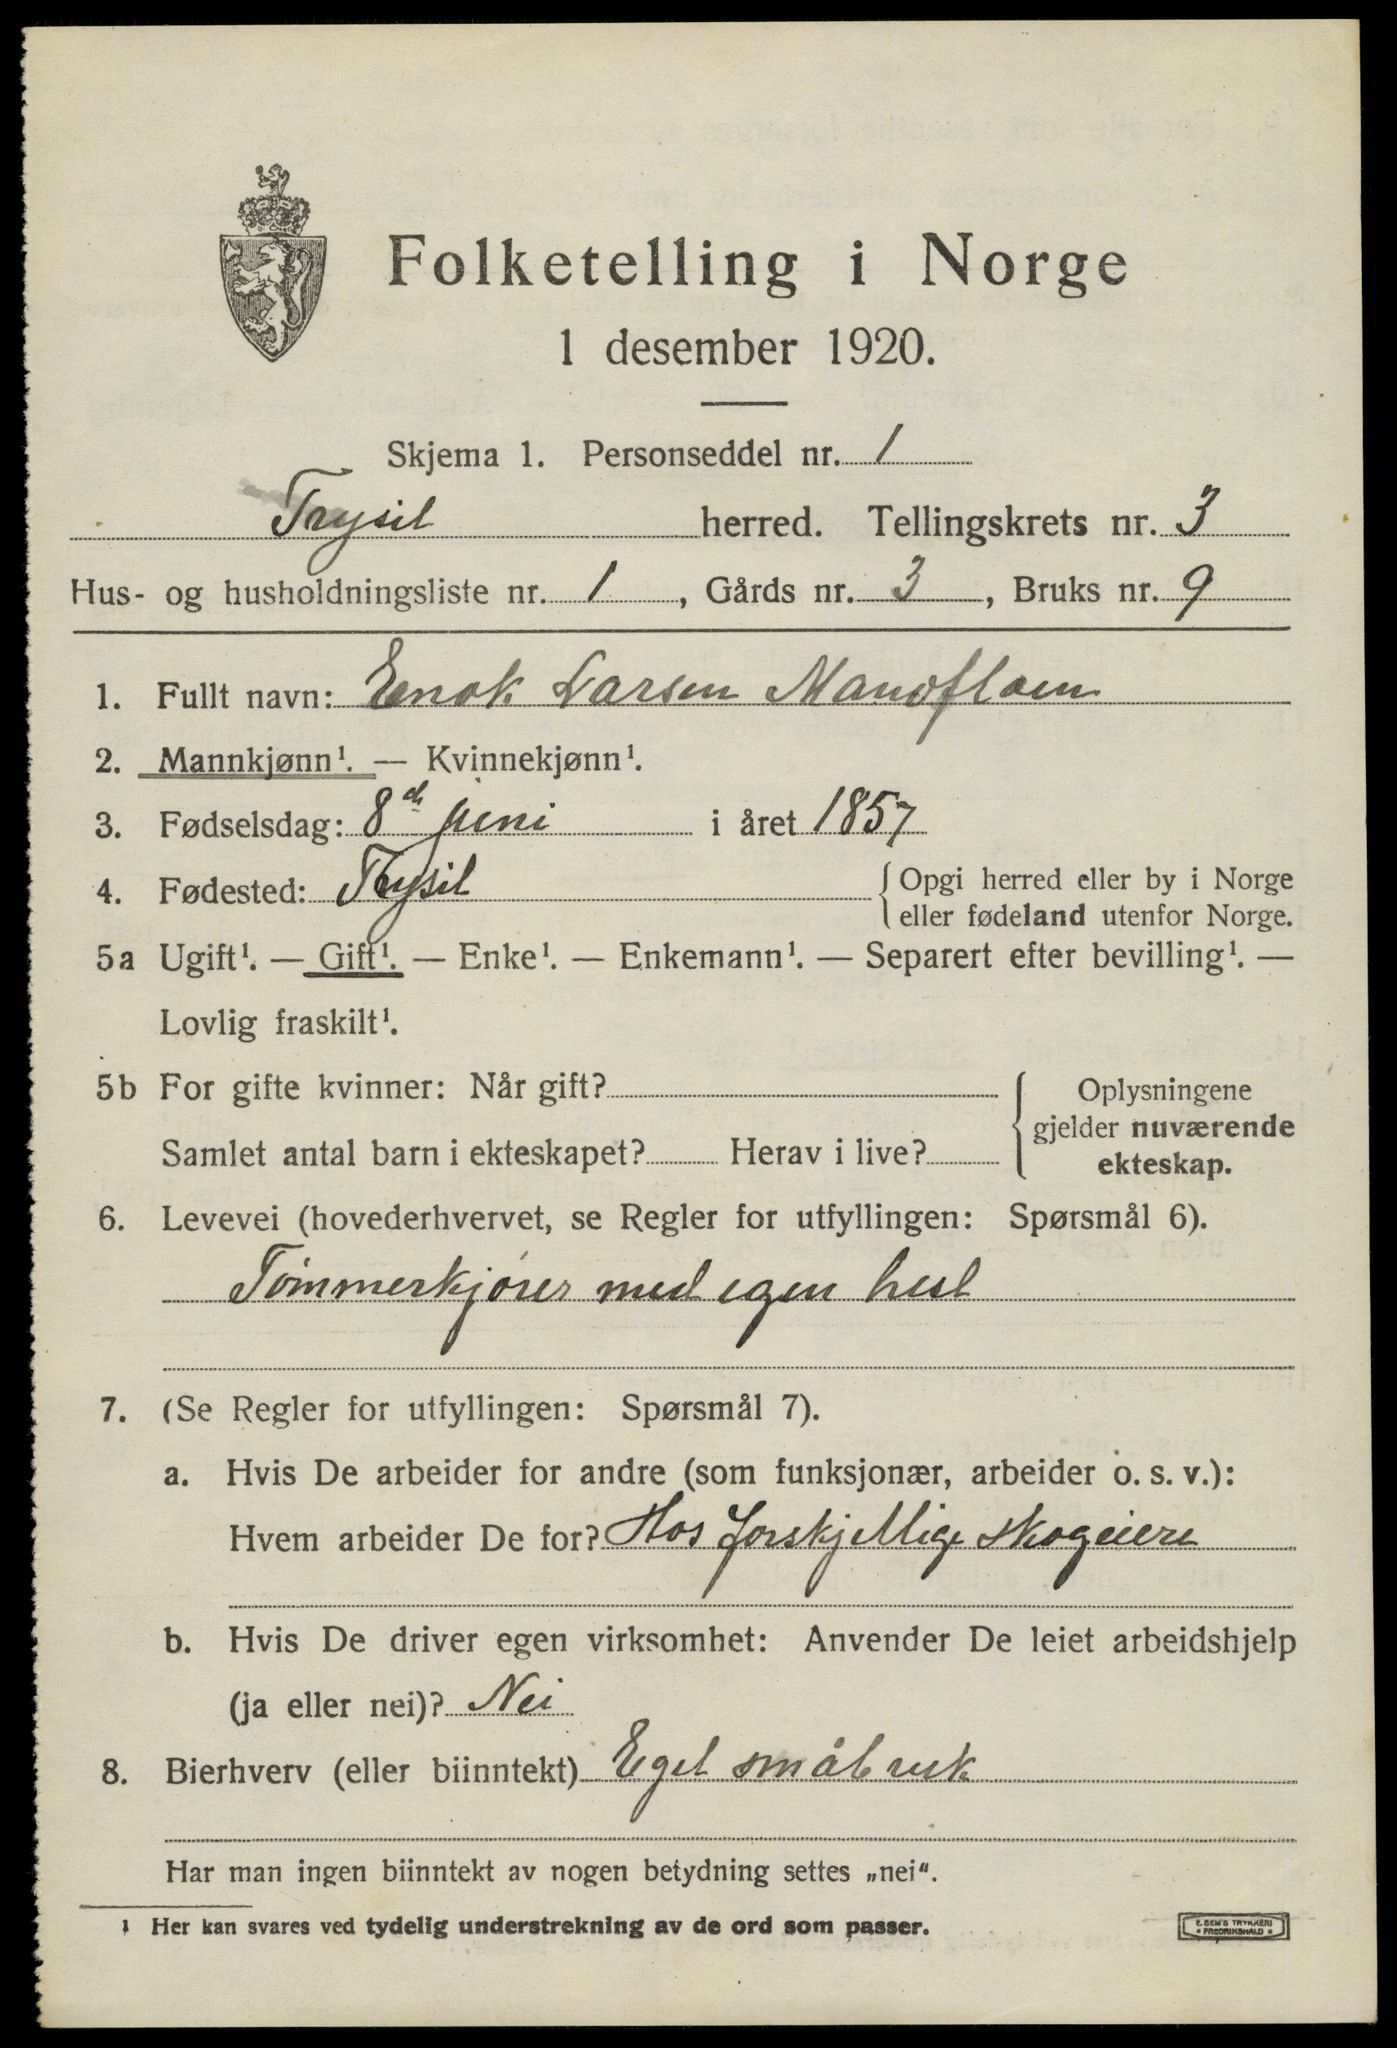 Folketelling i Norge
1 desember 1920.
Skjema 1. Personseddel nr. 1
Trysil herred. Tellingskrets nr. 3
Hus- og husholdningsliste nr. 1, Gårds nr. 3, Bruks nr. 9
1. Fullt navn: Enok Larsen Mandfloen
2. Mannkjønn¹. — Kvinnekjønn¹.
3. Fødselsdag: 8de juni i året 1857
4. Fødested: Trysil { Opgi herred eller by i Norge
eller fødeland utenfor Norge.
5a Ugift¹. — Gift¹. — Enke¹. — Enkemann¹. — Separert efter bevilling¹. —
Lovlig fraskilt¹.
5b For gifte kvinner: Når gift?
Samlet antal barn i ekteskapet? Herav i live?
{ Oplysningene
gjelder nuværende
ekteskap.
6. Levevei (hovederhvervet, se Regler for utfyllingen: Spørsmål 6).
Tømmerkjører med egen hest
7. (Se Regler for utfyllingen: Spørsmål 7).
a. Hvis De arbeider for andre (som funksjonær, arbeider o. s. v.):
Hvem arbeider De for? Hos forskjellige skogeiere
b. Hvis De driver egen virksomhet: Anvender De leiet arbeidshjelp
(ja eller nei)? Nei
8. Bierhverv (eller biinntekt) Eget småbruk
Har man ingen biinntekt av nogen betydning settes „nei“.
1 Her kan svares ved tydelig understrekning av de ord som passer.
E. SEM'S TRYKKERI
* FREDRIKSHALD *